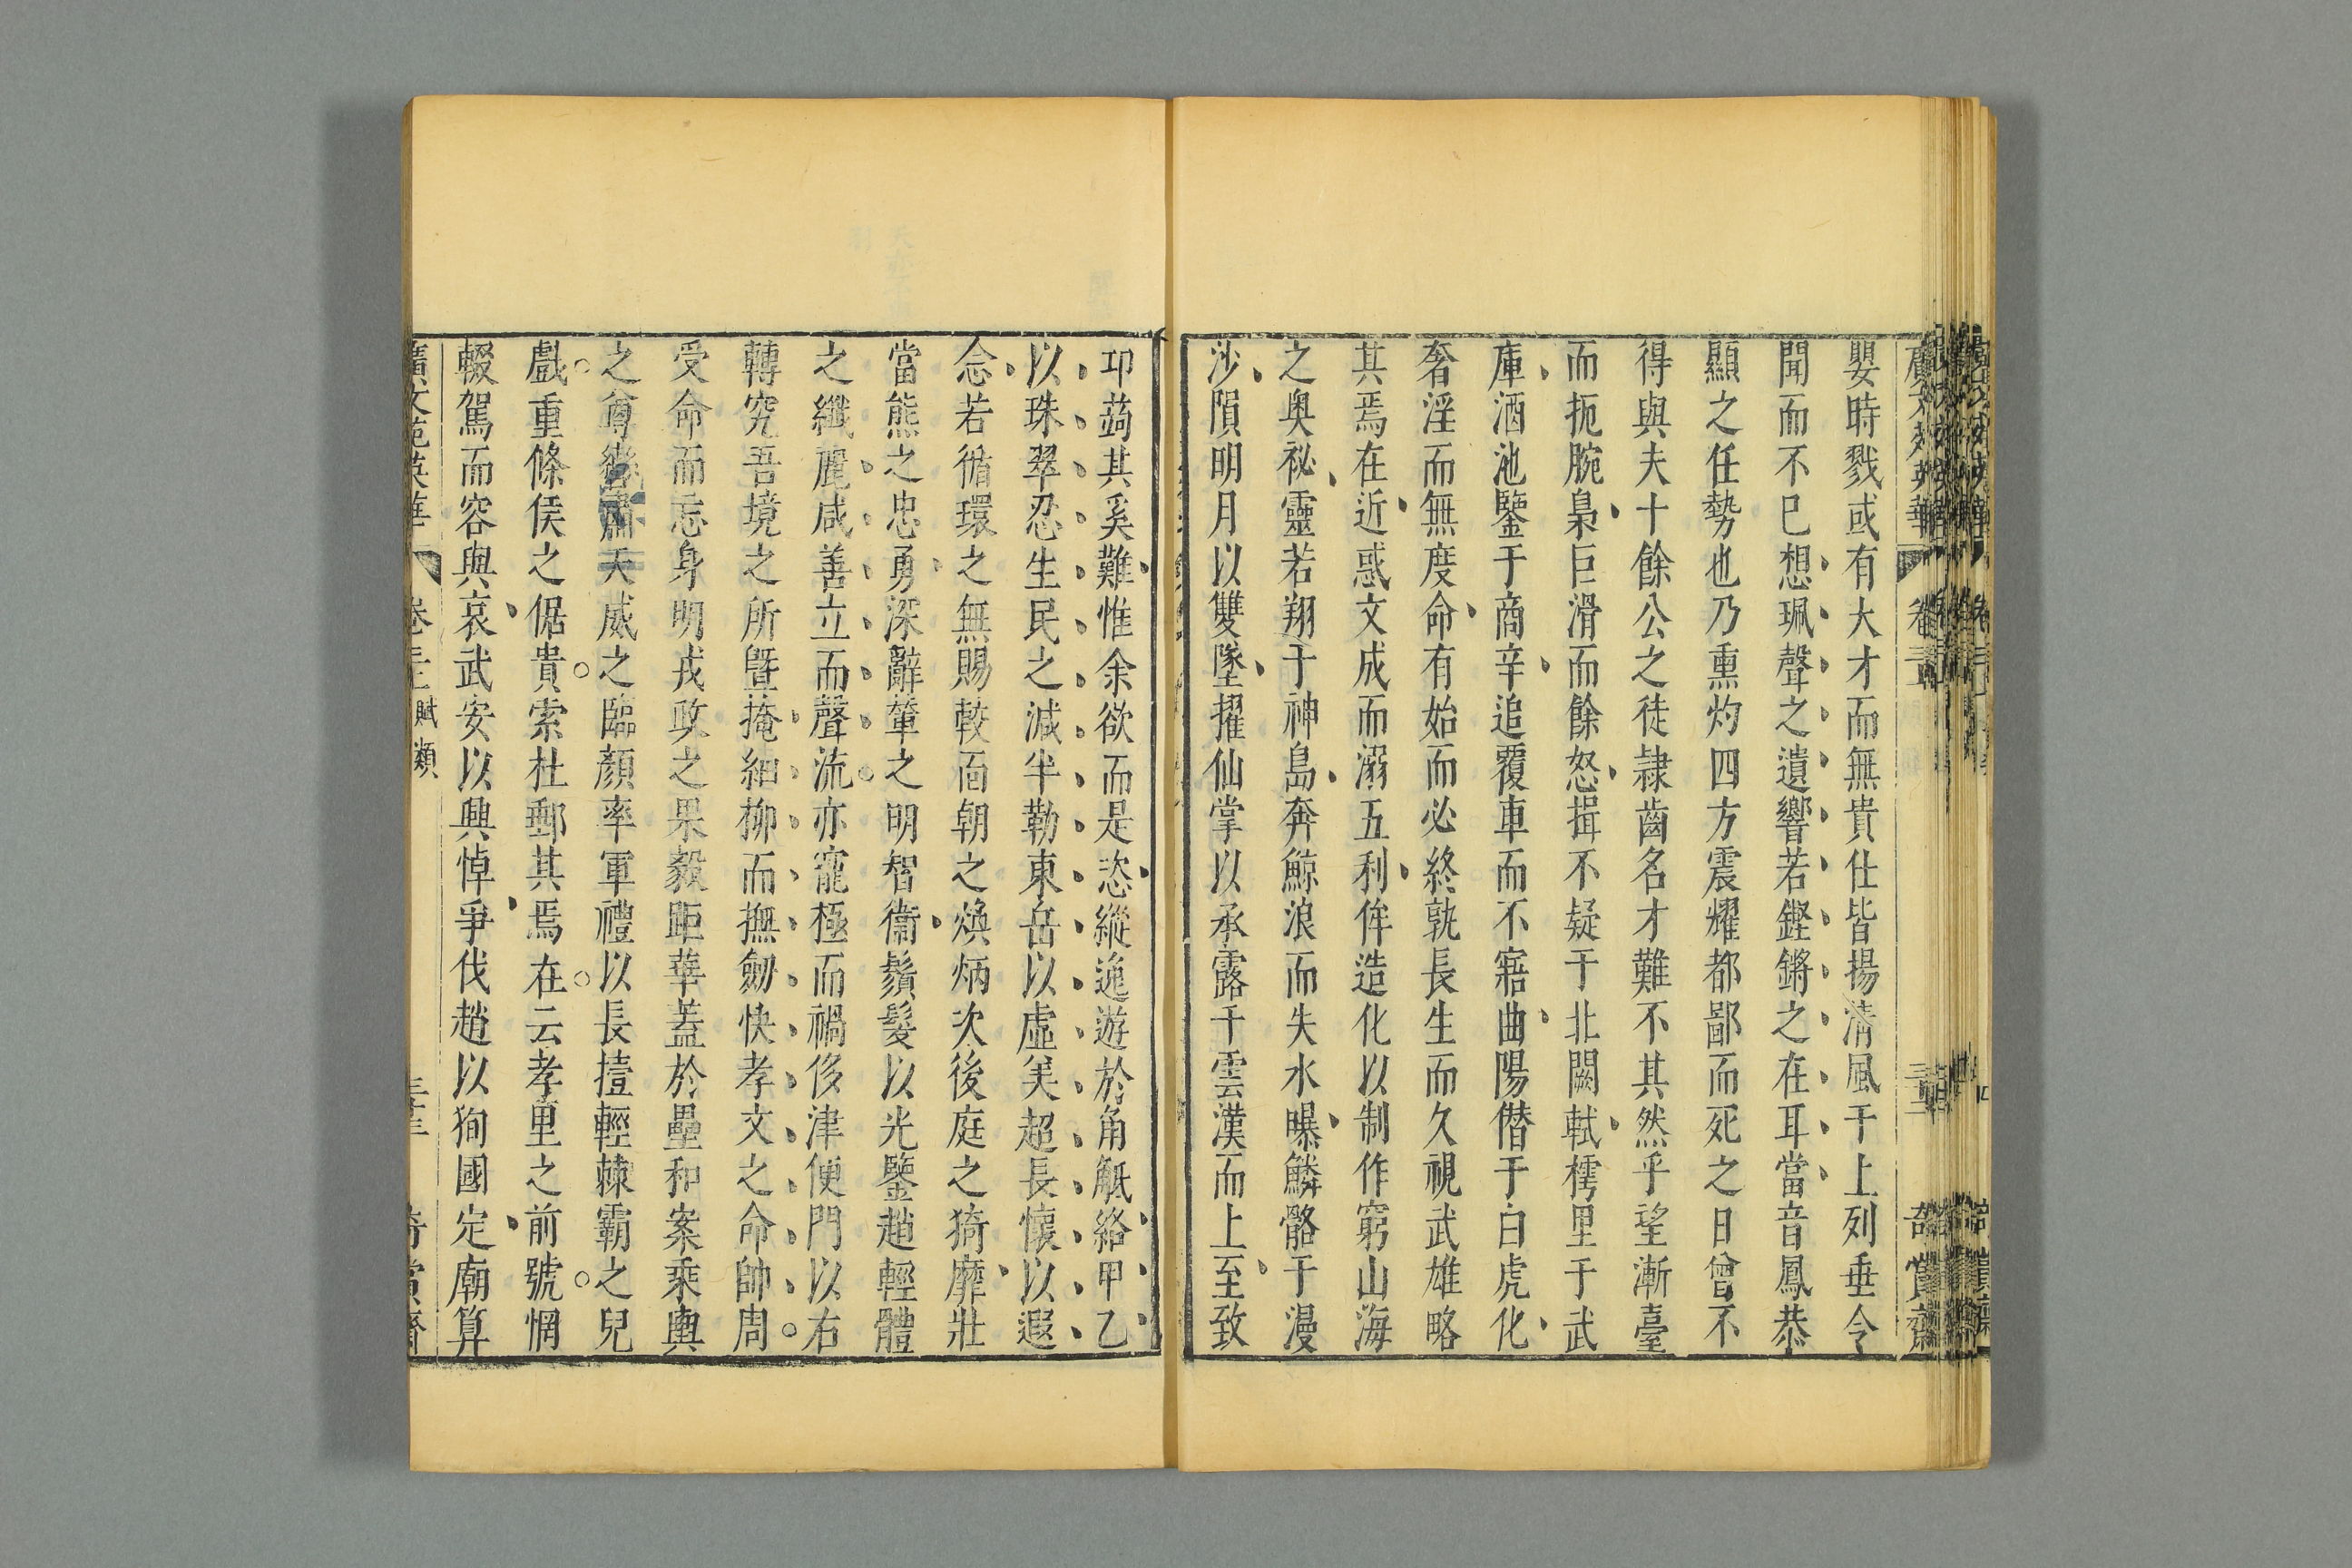 嬰時戮或有大才而無貴仕皆揚清風于上列垂令
聞而不已想珮聲之遺響若鏗鏘之在耳當音鳳恭
顯之任勢也乃熏灼四方震耀都鄙而死之日曾不
得與夫十餘公之徒隷齒名才難不其然乎望漸臺
而扼腕梟巨滑而餘怒揖不疑于北闕軾樗里于武
庫酒池鑒于商辛追覆車而不寤曲陽僭于白虎化
奢淫而無度命有始而必終孰長生而久視武雄略
其焉在近惑文成而溺五利侔造化以制作窮山海
之奥祕靈若翔于神島奔鯨浪而失水曝鱗骼于漫
沙隕明月以雙墜擢仙掌以承露干雲漢而上至致
卭蒟其奚難惟余欲而是恣縱逸遊於角觝絡甲乙
以珠翠忍生民之減半勒東岳以虛美超長懷以遐
念若循環之無賜較面朝之煥炳次後庭之猗靡壯
當熊之忠勇深辭輦之明智衞鬒髮以光鑒趙輕體
之纖麗咸善立而聲流亦寵極而禍侈津便門以右
轉究吾境之所曁掩細柳而撫劒快孝文之命帥周
受命而忘身明戎政之果毅距華蓋於壘和案乘輿
之尊轡肅天威之臨顔率軍禮以長撎輕棘霸之兒
戲重條侯之倨貴索杜郵其焉在云孝里之前號惘
輟駕而容與哀武安以興悼爭伐趙以狥國定廟算
廣文苑英華 卷三 賦類 三十三 奇賞齋